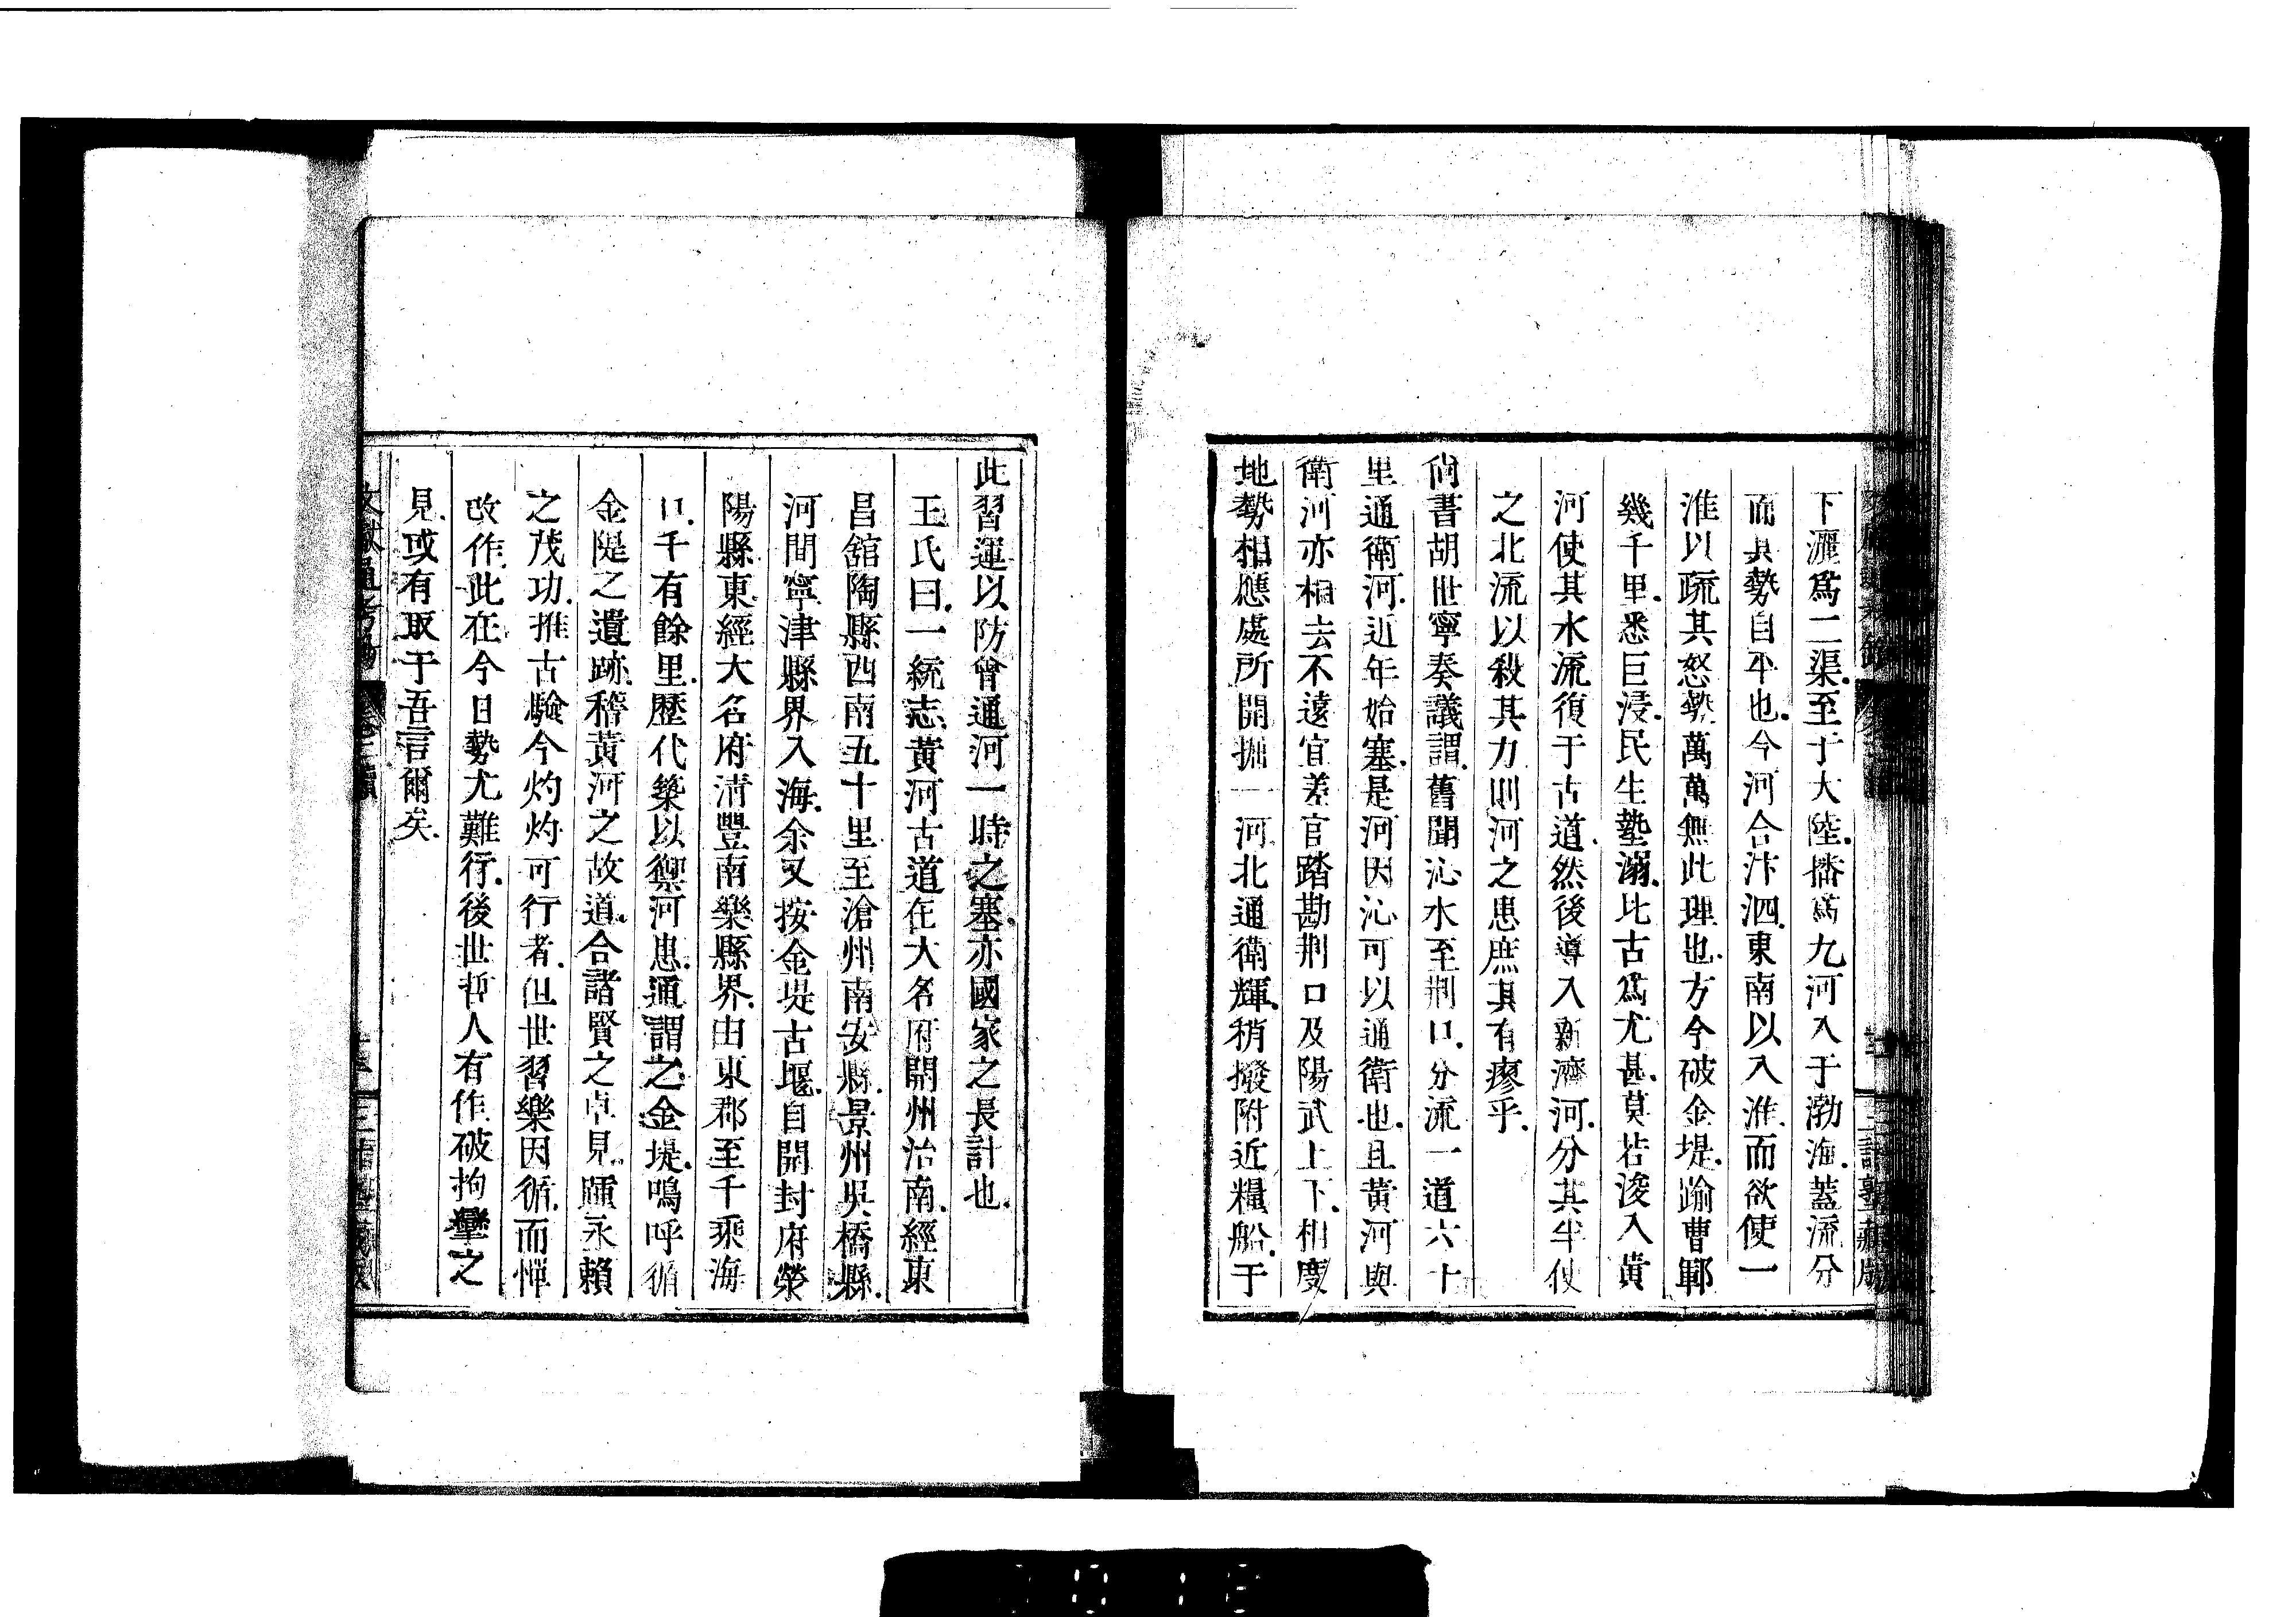 下灑爲二渠至于大陸播爲九河入于渤海蓋流分
而其勢自平也今河合汴泗東南以入淮而欲使一
淮以疏其怒勢萬萬無此理也方今破金堤踰曹鄆
幾千里悉巨浸民生墊溺比古爲尤甚莫若浚入黄
河使其水流復于古道然後導入新濟河分其半使
之北流以殺其力則河之患庶其有瘳乎
尙書胡世寧奏議謂舊聞沁水至荆口分流一道六十
里通衛河近年始塞是河因沁可以通衛也且黄河與
衛河亦相去不遠宜差官踏勘荆口及陽武上下相度
地勢相應處所開掘一河北通衛輝稍撥附近糧船于
此習運以防曾通河一時之塞亦國家之長計也
王氏曰一統志黄河古道在大名府開州治南經東
昌舘陶縣西南五十里至滄州南安縣景州吳橋縣
河間寧津縣界入海余又按金堤古堰自開封府滎
陽縣東經大名府淸豐南樂縣界由東郡至千乘海
口千有餘里歷代築以禦河患通謂之金堤嗚呼循
金隄之遺跡稽黄河之故道合諸賢之卓見踵永賴
之茂功推古驗今灼灼可行者但世習樂因循而憚
改作此在今日勢尤難行後世哲人有作破拘攣之
見或有取于吾言爾矣